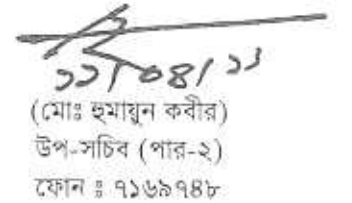 ১১/০৪/১১
(মোঃ হুমায়ুন কবীর)
উপ-সচিব (পার-২)
ফোন ঃ ৭১৬৯৭৪৮